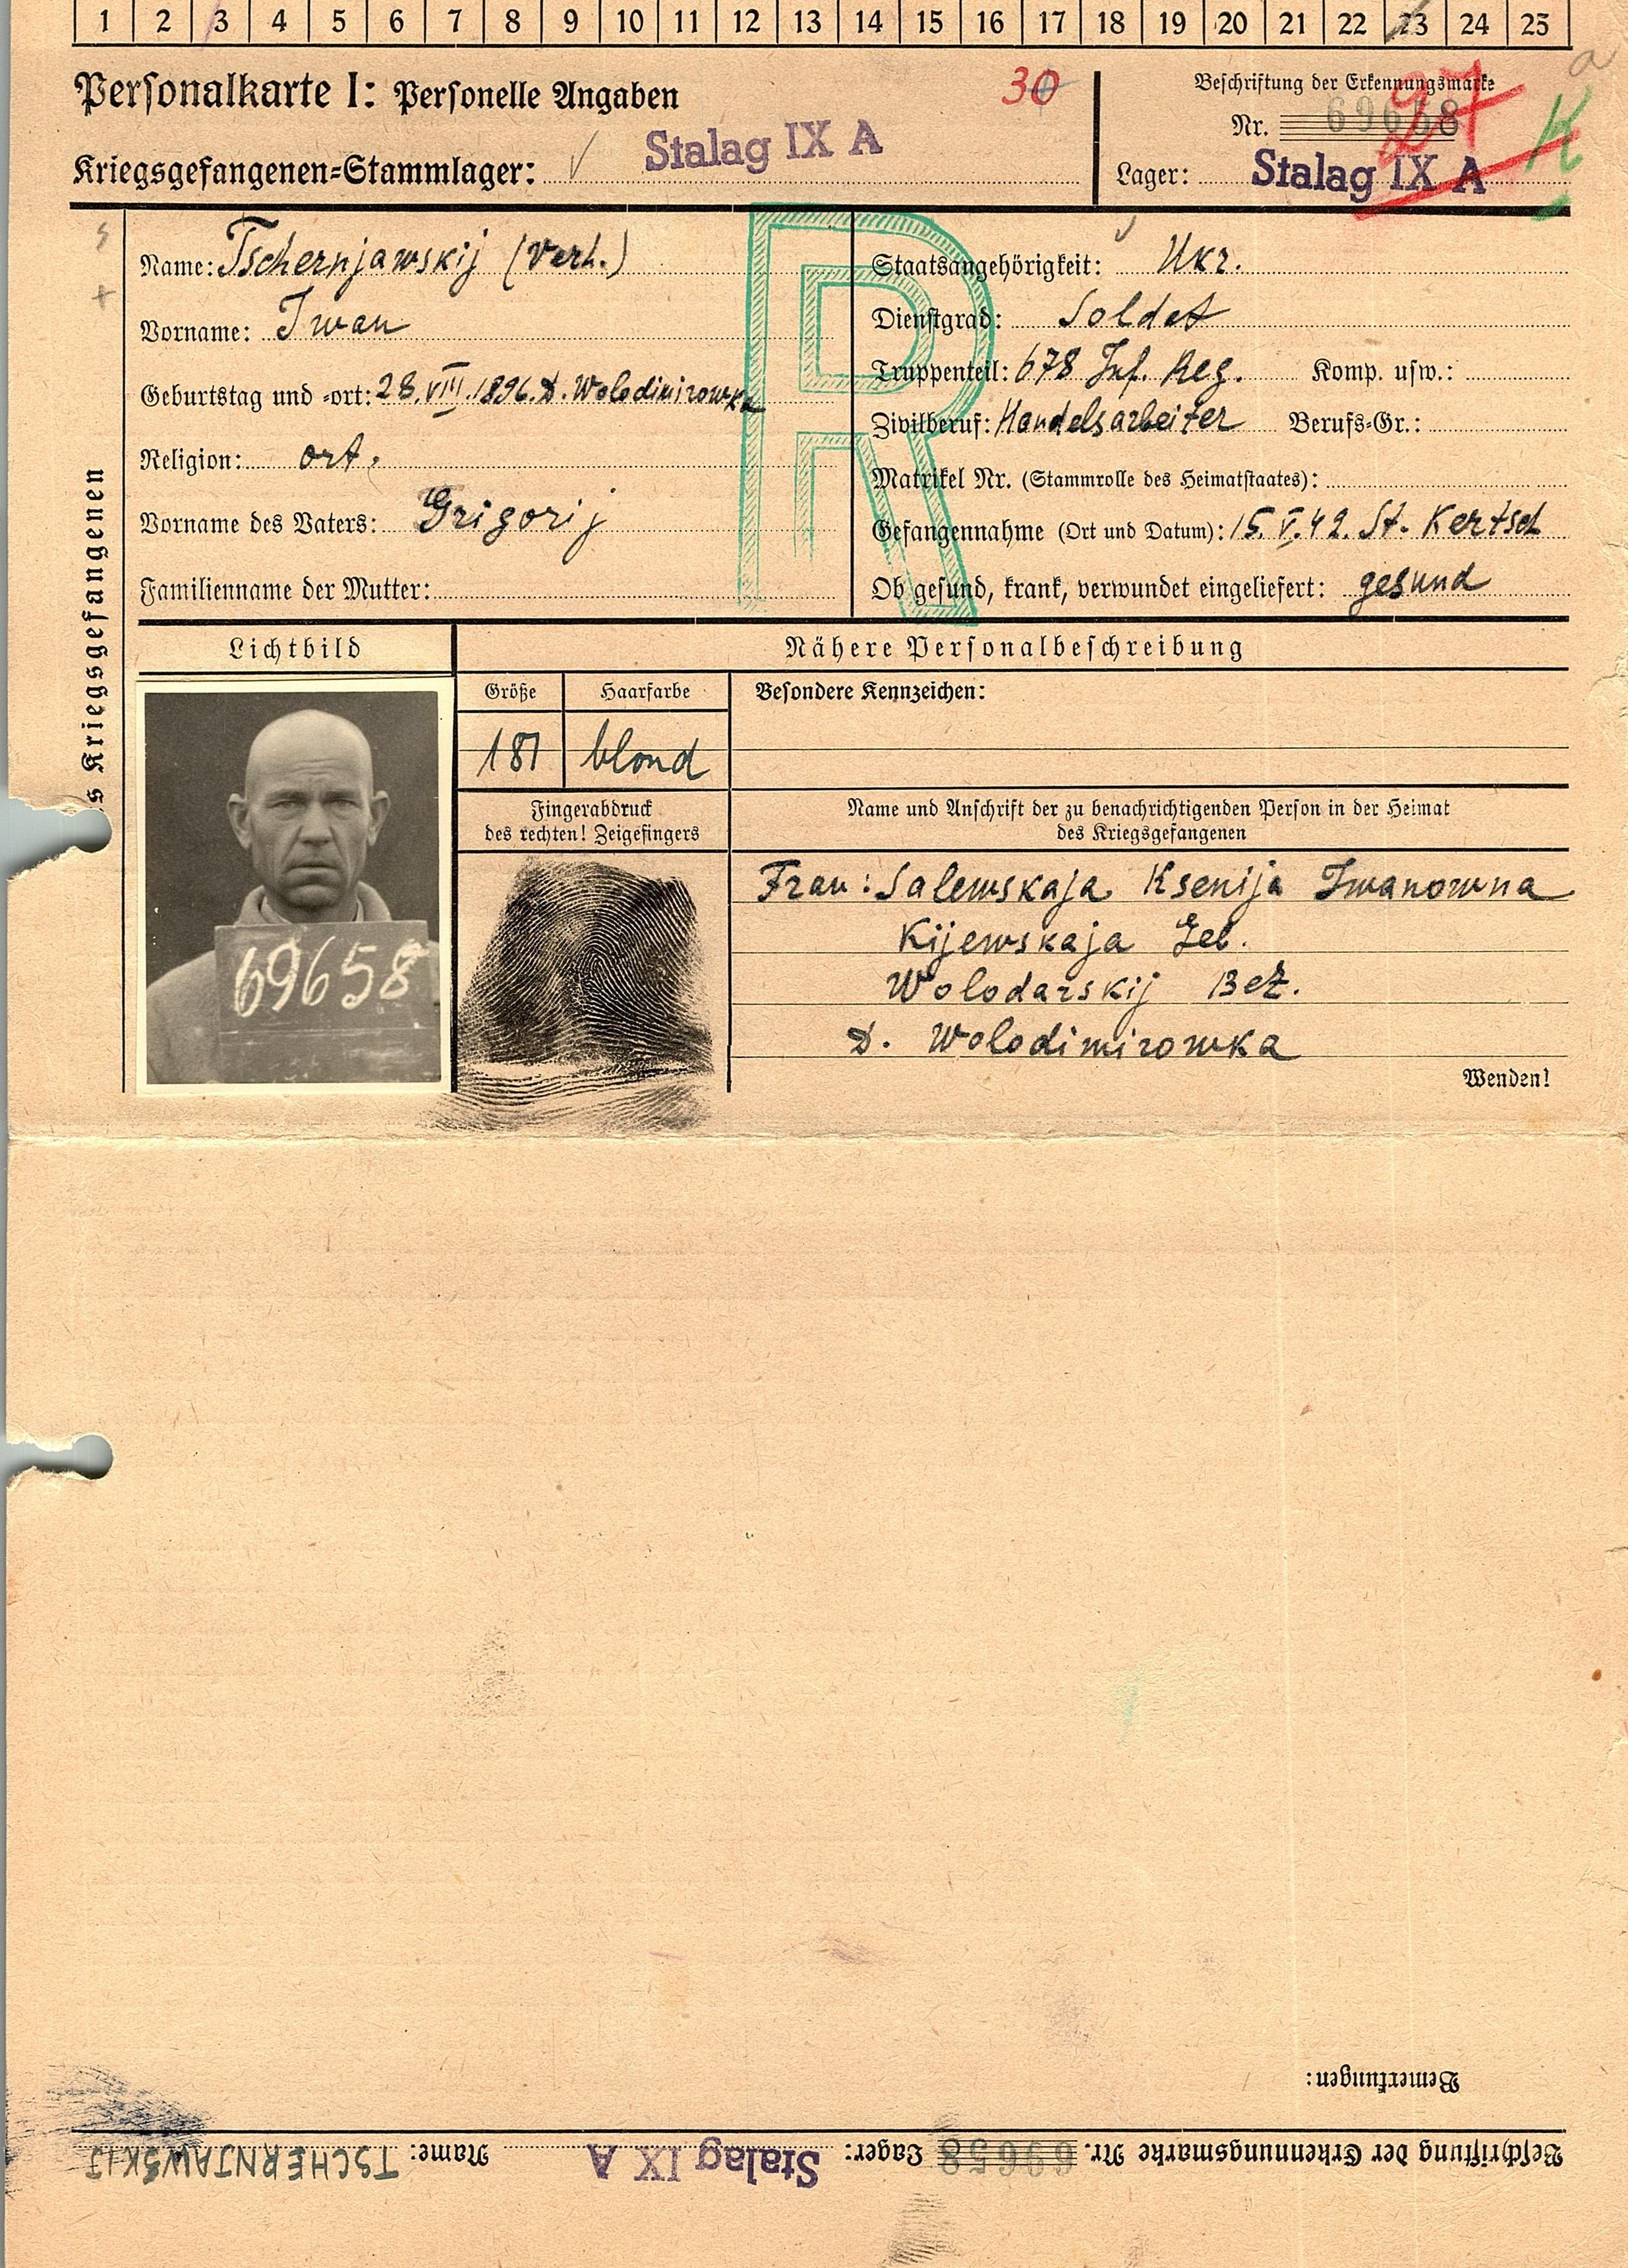 1 2 3 4 5 6 7 8 9 10 11 12 13 14 15 16 17 18 19 20 21 22 23 24 25
Personalkarte I: Personelle Angaben
30
Beschriftung der Erkennungsmarke
Nr. 69658
27
K
Kriegsgefangenen-Stammlager: Stalag IX A
Lager: Stalag IX A
Name: Tschernjawskij (verh.)
Staatsangehörigkeit: Ukr.
Vorname: Iwan
Dienstgrad: Soldat
Truppenteil: 678 Inf. Reg. Komp. usw.:
Geburtstag und -ort: 28. VIII. 1896. D. Wolodimirowka
Zivilberuf: Handelsarbeiter Berufs-Gr.:
Religion: ort.
Matrikel Nr. (Stammrolle des Heimatstaates):
Vorname des Vaters: Grigorij
Gefangennahme (Ort und Datum): 15. V. 42. St. Kertsch
Familienname der Mutter:
Ob gesund, krank, verwundet eingeliefert: gesund
R
s Kriegsgefangenen
Lichtbild
Nähere Personalbeschreibung
Größe
Haarfarbe
Besondere Kennzeichen:
181
blond
Fingerabdruck
des rechten! Zeigefingers
Name und Anschrift der zu benachrichtigenden Person in der Heimat
des Kriegsgefangenen
69658
Frau: Salewskaja Ksenija Iwanowna
Kijewskaja Geb.
Wolodarskij Bez.
D. Wolodimirowka
Wenden!
Bemerkungen:
Beschriftung der Erkennungsmarke Nr. 69658 Lager: Stalag IX A Name: TSCHERNJAWSKIJ